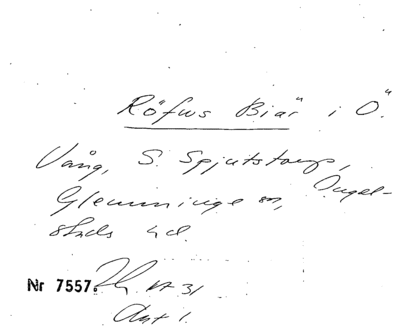 Röfws Biär i Ö.
Vång, S. Spjutstorp,
Glemminge sn, Ingel-
stads hd.
Nr 7557.